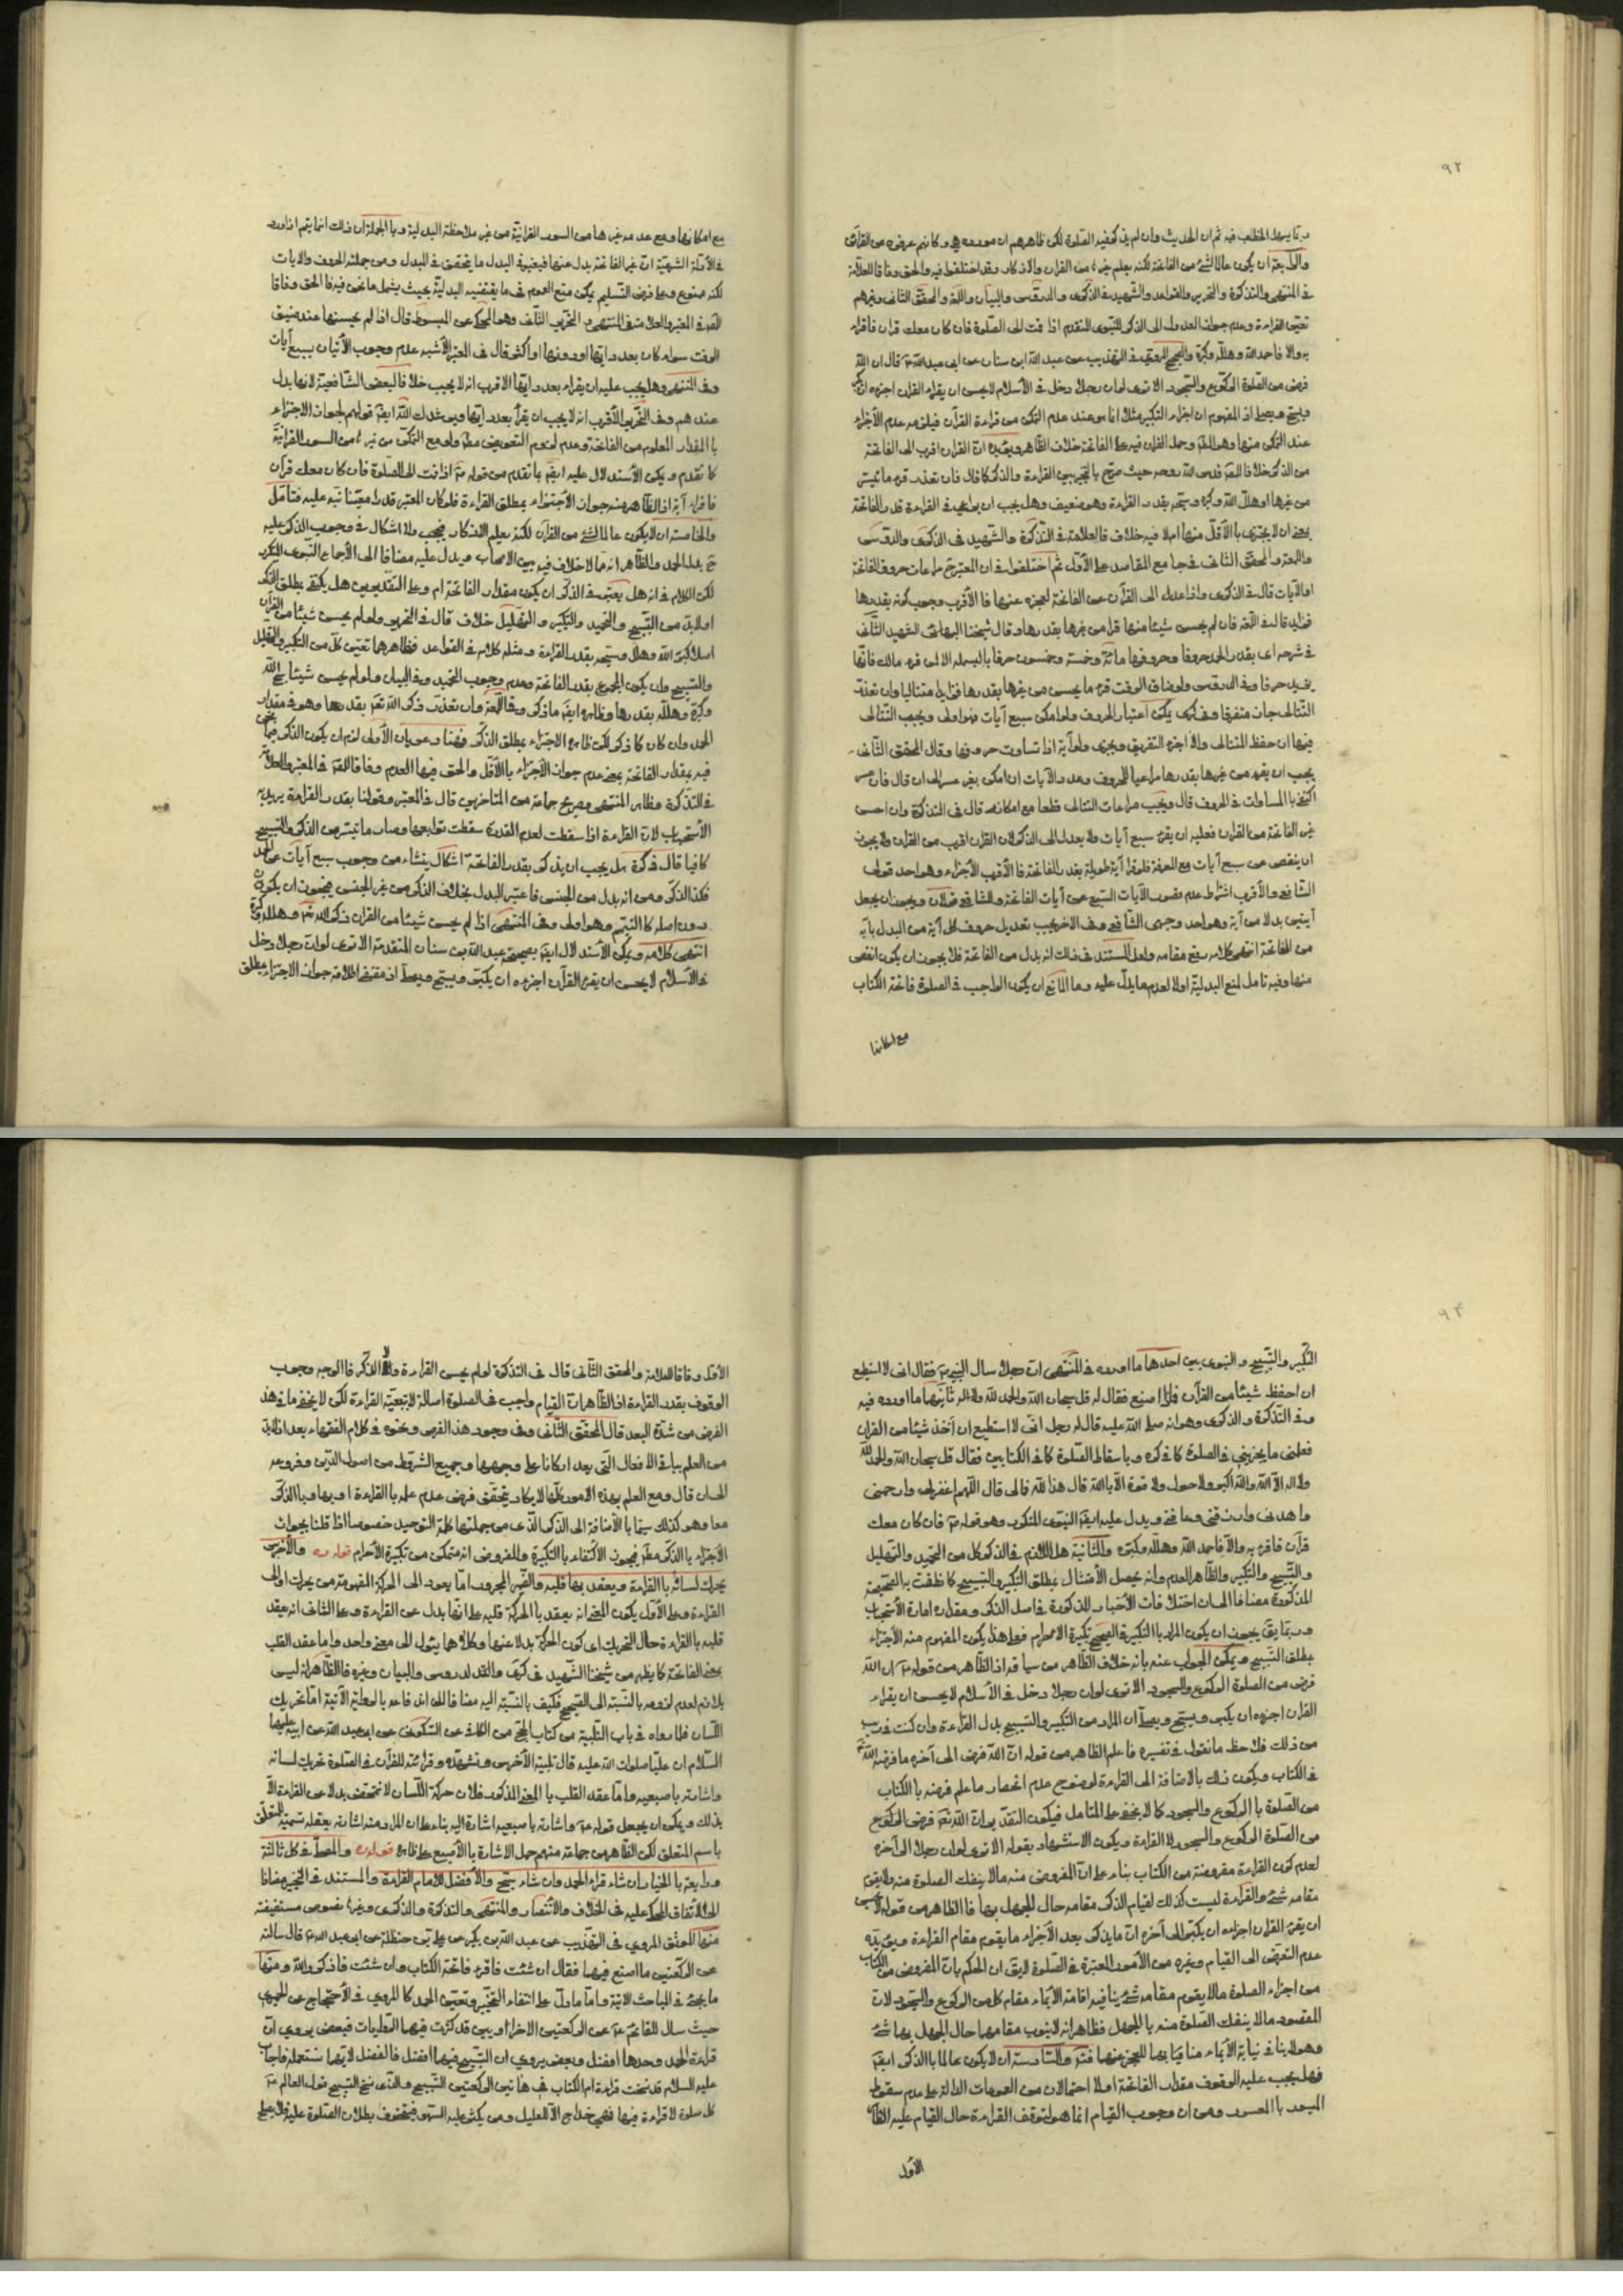 ٩٢
وربما يومئ الخطب فيه ثم ان الحديث وان لم يذكر فيه الصلوة لكن ظاهرهم ان مورده هي وكانهم عرفوه من القرآئن
والرابعة ان يكون عالما لشئ من الفاتحة لكنه يعلم غيرها من القران والاذكار وقد اختلفوا فيه والحق وفاقا للعلامة
في المنتهى والتذكرة والتحرير والقواعد والشهيد في الذكرى والدروس والبيان واللمعة والمحقق الثاني وغيرهم
تعين القراءة وعدم جواز العدول الى الذكر للنبوى المتقدم اذا قمت الى الصلوة فان كان معك قران فاقرء
به والا فاحمد الله وهلله وكبره والصحيح المروي في التهذيب عن عبد الله ابن سنان عن ابي عبد الله ع قال ان الله
فرض من الصلوة الركوع والسجود الا ترى لو ان رجلا دخل في الاسلام لا يحسن ان يقراء القران اجزءه ان يكبر
ويسبح ويصلي اذ المفهوم ان اجزاء التكبير مثلا انما هو عند عدم التمكن من قراءة القرآن فيلزمه عدم الاجزاء
عند التمكن منها وهو الحق وحمل القران فيه على الفاتحة خلاف الظاهر ويؤيده ان القران اقرب الى الفاتحة
من الذكر خلافا للمص قدس الله روحه حيث صرح بالتخيير بين القراءة والذكر كما قال فان تعذر قرء ما تيسر
من غيرها او هلل الله وكبره وسبحه بقدر القراءة وهو ضعيف وهل يجب ان يراعى في القراءة قدر الفاتحة
بمعنى ان لا يجتزى بالاقل منها ام لا فيه خلاف فالعلامة في التذكرة والشهيد في الذكرى والدروس
واللمعة والمحقق الثاني في جامع المقاصد على الاول ثم اختلفوا في ان المعتبر ح مراعات حروف الفاتحة
او الآيات قال في الذكرى واذا عدل الى القرآن عن الفاتحة لعجزه عنها فالاقرب وجوب كونه بقدرها
فزايدا قال في اللمعة فان لم يحسن شيئا منها قرا من غيرها بقدرها وقال شيخنا البهائى الشهيد الثاني
في شرحه اى بقدر الحمد حروفا وحروفها مائة وخمسة وخمسون حرفا بالبسملة الا لمن قرء مالك فانها
يزيد حرفا وفي الدروس ولو ضاق الوقت قرء ما يحسن من غيرها بقدرها فزايدا متتاليا وان تعذر
التتالى جاز متفرقا وفي كرى يمكن اعتبار الحروف ولو امكن سبع آيات فهو اولى ويجب التتالى
فيها ان حفظ المتتالى والا اجزء التفريق ويجزى ولو آية اذا تساوت حروفها وقال المحقق الثاني
يجب ان يقرء من غيرها بقدرها مراعيا للحروف وعدد الآيات ان امكن بغير عسر الى ان قال فان عسر
اكتفى بالمساوات في الحروف قال ويجب مراعات التتالى قطعا مع امكانه قال في التذكرة وان احسن
غير الفاتحة من القران فعليه ان يقرء سبع آيات ولا يعدل الى الذكر لان القران اقرب من القران ولا يجوز
ان ينقص عن سبع آيات مع المعرفة فلو قرا آية طويلة بقدر الفاتحة فالاقرب الاجزاء وهو احد قولى
الشافعي والاقرب اشتراط عدم قصور الآيات السبع عن آيات الفاتحة وللشافعي قولان ويجوز ان يجعل
آيتين بدلا من آية وهو احد وجهى الشافعي وفي الاخر يجب تعديل حروف كل آية من البدل بآية
من الفاتحة انتهى كلامه رفع مقامه ولعل المستند في ذلك انه بدل من الفاتحة فلا يجوز ان يكون انقص
منها وفيه تامل لمنع البدلية اولا لعدم ما يدل عليه وما المانع ان يكون الواجب في الصلوة فاتحة الكتاب
مع امكانها
مع امكانها ومع عدمه غيرها من السور القرانية من غير ملاحظة البدلية وبالجملة ان ذلك انما يتم اذا ورد
في الادلة الشرعية ان غير الفاتحة بدل عنها فيعتبر في البدل ما يتحقق في المبدل ومن جملته الحروف والايات
لكنه ممنوع وعلى فرض التسليم يمكن منع العموم في ما يقتضيه البدلية بحيث يشمل ما نحن فيه فالحق وفاقا
للمص في المعتبر والعلامة في المنتهى و التحرير الثاني وهو المحكى عن المبسوط قال اذا لم يحسنها عند ضيق
الوقت سواء كان بعدد اياتها او دونها او اكثر قال في المعتبر الاشبه عدم وجوب الاتيان بسبع آيات
وفي المنتهى وهل يجب عليه ان يقراء بعدد اياتها الاقرب انه لا يجب خلافا لبعض الشافعية لانها بدل
عندهم وفي التحرير الاقرب انه لا يجب ان يقرأ بعدد اياتها ويرشدك الله ايضا قولهم بجواز الاجتزاء
بالمقدار المعلوم من الفاتحة وعدم لزوم التعويض مطلقا ولو مع التمكن من غيرها من السور القرانية
كما تقدم ويمكن الاستدلال عليه ايضا بما تقدم من قوله ع اذا قمت الى الصلوة فان كان معك قرآن
فاقراء آية اذ الظاهر منه جواز الاجتزاء بمطلق القراءة فلو كان المعتبر قدرا معينا نبه عليه فتامل
والخامسة ان لا يكون عالما لشئ من القران لكنه يعلم الاذكار فيجب ولا اشكال في وجوب الذكر عليه
ح بدل الحمد والظاهر انه مما لا خلاف فيه بين الاصحاب ويدل عليه مضافا الى الاجماع النبوى المذكور
لكن الكلام في انه هل يعتبر في الذكر ان يكون مقدار الفاتحة ام لا وعلى التقديرين هل يكتفى بمطلق الذكر
او لا بد من التسبيح والتحميد والتكبير والتهليل خلاف قال في التحرير ولو لم يحسن شيئا من القرآن
اصلا كبر الله وهلل وسبحه بقدر القراءة ومثله كلامه في القواعد فظاهرهما تعين كل من التكبير والتهليل
والتسبيح وان يكون المجموع بقدر الفاتحة وعدم وجوب التحميد وفي البيان ولو لم يحسن شيئا سبح الله
وكبره وهلله بقدرها وظاهره ايضا ما ذكر وفي اللمعة وان تعذر ذكر الله تع بقدرها وهو في مقدار
الحمد وان كان كما ذكر لكن ظاهره الاجتزاء بمطلق الذكر فهنا دعويان الاولى لزوم ان يكون الذكر فيما نحن
فيه بمقدار الفاتحة بمعنى عدم جواز الاجتزاء بالاقل والحق فيها العدم وفاقا للمص في المعتبر والعلامة
في التذكرة وظاهر المنتهى وصريح جماعة من المتاخرين قال في المعتبر وقولنا بقدر القراءة يريد به
الاستحباب لان القراءة اذا سقطت لعدم القدرة سقطت توابعها وصار ما تيسر من الذكر والتسبيح
كافيا قال في كرة هل يجب ان يذكر بقدر الفاتحة اشكال ينشاء من وجوب سبع آيات عن الحمد
فكذا الذكر ومن انه بدل من الجنس فاعتبر البدل بخلاف الذكر من غير الجنس فيجوز ان يكون
دون اصله كالتيمم وهو اولى وفي المنتهى اذا لم يحسن شيئا من القران ذكر الله تع وهلله وكبره
انتهى كلامه ويمكن الاستدلال ايضا بصحيحة عبد الله بن سنان المتقدمة الا ترى لو ان رجلا دخل
في الاسلام لا يحسن ان يقرء القرآن اجزءه ان يكبر ويسبح ويصلي اذ مقتضى اطلاقه جواز الاجتزاء بمطلق
٩٣
التكبير والتسبيح والنبوى بين احدهما ما اورده في المنتهى ان رجلا سال النبى ص فقال انى لا استطيع
ان احفظ شيئا من القرآن فماذا اصنع فقال له قل سبحان الله والحمد لله ولا اله ثانيهما ما اورده فيه
وفي التذكرة والذكرى وهو انه صلى الله عليه قال له رجل انى لا استطيع ان آخذ شيئا من القران
فعلمنى ما يجزينى في الصلوة كما في كره وباسقاط الصلوة كما في الكتابين فقال قل سبحان الله والحمد لله
ولا اله الا الله والله اكبر ولا حول ولا قوة الا بالله قال هذا لله فمالى قال اللهم اغفر لى وارحمنى
واهدنى وارزقنى وعافنى ويدل عليه ايضا النبوى المذكور وهو قوله ص فان كان معك
قرآن فاقرء به والا فاحمد الله وهلله وكبره والثانية هل اللازم في الذكر كل من التحميد والتهليل
والتسبيح والتكبير والظاهر العدم وانه يحصل الامتثال بمطلق التكبير والتسبيح كما نطقت به الصحيحة
المذكورة مضافا الى ان اختلاف الاخبار المذكورة في اصل الذكر ومقداره امارة الاستحباب
وربما يق يجوز ان يكون المراد بالتكبير في الصحيح تكبيرة الاحرام فعلى هذا يكون المفهوم منه الاجزاء
بمطلق التسبيح ويمكن الجواب عنه بانه خلاف الظاهر من سياقه اذ الظاهر من قوله ع ان الله
فرض من الصلوة الركوع والسجود الا ترى لو ان رجلا دخل في الاسلام لا يحسن ان يقراء
القران اجزءه ان يكبر ويسبح ويصلي ان المراد من التكبير والتسبيح بدل القراءة وان كنت في ريب
من ذلك فلاحظ ما نقول في تفسيره فاعلم الظاهر من قوله ان الله فرض الى آخره ما فرضه الله
في الكتاب ويكون ذلك بالاضافة الى القراءة لوضوح عدم انحصار ما علم فرضه بالكتاب
من الصلوة بالركوع والسجود كما لا يخفى على المتامل فيكون التقدير ان الله تع فرض الركوع
من الصلوة الركوع والسجود لا القراءة ويكون الاستشهاد بقوله الا ترى لو ان رجلا الى آخره
لعدم كون القراءة مفروضة من الكتاب بناء على ان المفروض منه ما لا ينفك الصلوة منه ولا يقوم
مقامه شئ والقراءة ليست كذلك لقيام الذكر مقامه حال الجهل بها فالظاهر من قوله لا يحسن
ان يقرء القران اجزءه ان يكبر الى آخره ان ما يذكر بعد الاجزاء ما يقوم مقام القراءة ويؤيده
عدم التعرض الى القيام وغيره من الامور المعتبرة في الصلوة لا يق ان الحكم بان المفروض من الكتاب
من اجزاء الصلوة ما لا يقوم مقامه شئ ينافيه اقامة الايماء مقام كل من الركوع والسجود لان
المقصود ما لا ينفك الصلوة منه بالجهل فظاهر انه لا ينوب مقامها حال الجهل بها شئ
وهو لا ينافي نيابة الايماء منابهما للعجز عنهما فتدبر والسادسة ان لا يكون عالما بالذكر ايضا
فهل يجب عليه الوقوف مقدار الفاتحة او لا احتمالان من العمومات الدالة على عدم سقوط
الميسور بالمعسور ومن ان وجوب القيام انما هو لتوقف القراءة حال القيام عليه الظاهر
الاول
الاول وفاقا للعلامة والمحقق الثاني قال في التذكرة لو لم يحسن القراءة ولا الذكر فالوجه وجوب
الوقوف بقدر القراءة اذ الظاهر ان القيام واجب في الصلوة اصالة لا بتبعية القراءة لكن لا يخفى ما في هذا
الفرض من شدة البعد قال المحقق الثاني وفي وجود هذا الفرض ونحوه في كلام الفقهاء بعد اذ لا بد
من العلم بباقي الافعال التى يعد اركانا على وجهها وجميع الشروط من اصول الدين وفروعه
الى ان قال ومع العلم بهذه الامور كلها لا يكاد يتحقق فرض عدم علمه بالقراءة او بها وبالذكر
معا وهو كذلك سيما بالاضافة الى الذكر الذى من جملتها كلمة التوحيد خصوصا اذا قلنا بجواز
الاجزاء بالذكر مطلقا فيجوز الاكتفاء بالتكبيرة والمفروض انه متمكن من تكبيرة الاحرام قوله ره والاخرس
يحرك لسانه بالقراءة ويعقد بها قلبه والضمير المجرور اما يعود الى الحركة المفهومة من يحرك او الى
القراءة وعلى الاول يكون المعنى انه يعقد بالحركة قلبه على انها بدل عن القراءة وعلى الثاني انه يعقد
قلبه بالقراءة حال التحريك اى كون الحركة بدلا عنها وكلاهما يئول الى معنى واحد واما عقد القلب
بمعنى الفاتحة كما يظهر من شيخنا الشهيد في كرى والدروس والبيان وغيره فالظاهر انه ليس
بلازم لعدم لزومه بالنسبة الى الفصيح فكيف بالنسبة اليه مضافا الى اندفاعه بالمعلقة الآتية اما تحريك
اللسان فلما رواه في باب التلبية من كتاب الحج من الكافي عن السكونى عن ابى عبد الله عن ابيه عليهما
السلام ان عليا صلوات الله عليه قال تلبية الاخرس وتشهده وقراءته للقرآن في الصلوة تحريك لسانه
واشارته باصبعيه واما عقد القلب بالمعنى المذكور فلان حركة اللسان لا تتمحض بدلا عن القراءة الا
بذلك ويمكن ان يجعل قوله ع واشارته باصبعيه اشارة اليه بناء على ان المراد منه اشارته بعقله تسمية المتعلق
باسم المتعلق لكن الظاهر من جماعة منهم حمل الاشارة بالاصبع على ظاهره قوله ره والمصلى في كل ثالثة
ورابعة بالخيار ان شاء قراء الحمد وان شاء سبح والافضل للامام القراءة والمستند في التخيير مضافا
الى الاتفاق المحكى عليه في الخلاف والانتصار والمنتهى والتذكرة والذكرى وغيرها نصوص مستفيضة
منها الموثق المروي في التهذيب عن عبد الله بن بكير عن على بن حنظلة عن ابى عبد الله ع قال سالته
عن الركعتين ما اصنع فيهما فقال ان شئت فاقرء فاتحة الكتاب وان شئت فاذكر الله ومنها
ما يجئ في المباحث الاتية واما ما دل على انتفاء التخيير وتعين الحمد كما المروي في الاحتجاج عن الحميرى
حيث سال للقائم ع عن الركعتين الاخراوين قد كثرت فيهما الروايات فبعض يروى ان
قراءة الحمد وحدها افضل وبعض يروى ان التسبيح فيهما افضل فالفضل لايهما لنستعمله فاجاب
عليه السلام قد نسخت قراءة ام الكتاب في هاتين الركعتين التسبيح والذى نسخ التسبيح قول العالم ع
كل صلوة لا قراءة فيها فهي خداج الا للعليل ومن يكثر عليه السهو فيتخوف بطلان الصلوة عليه